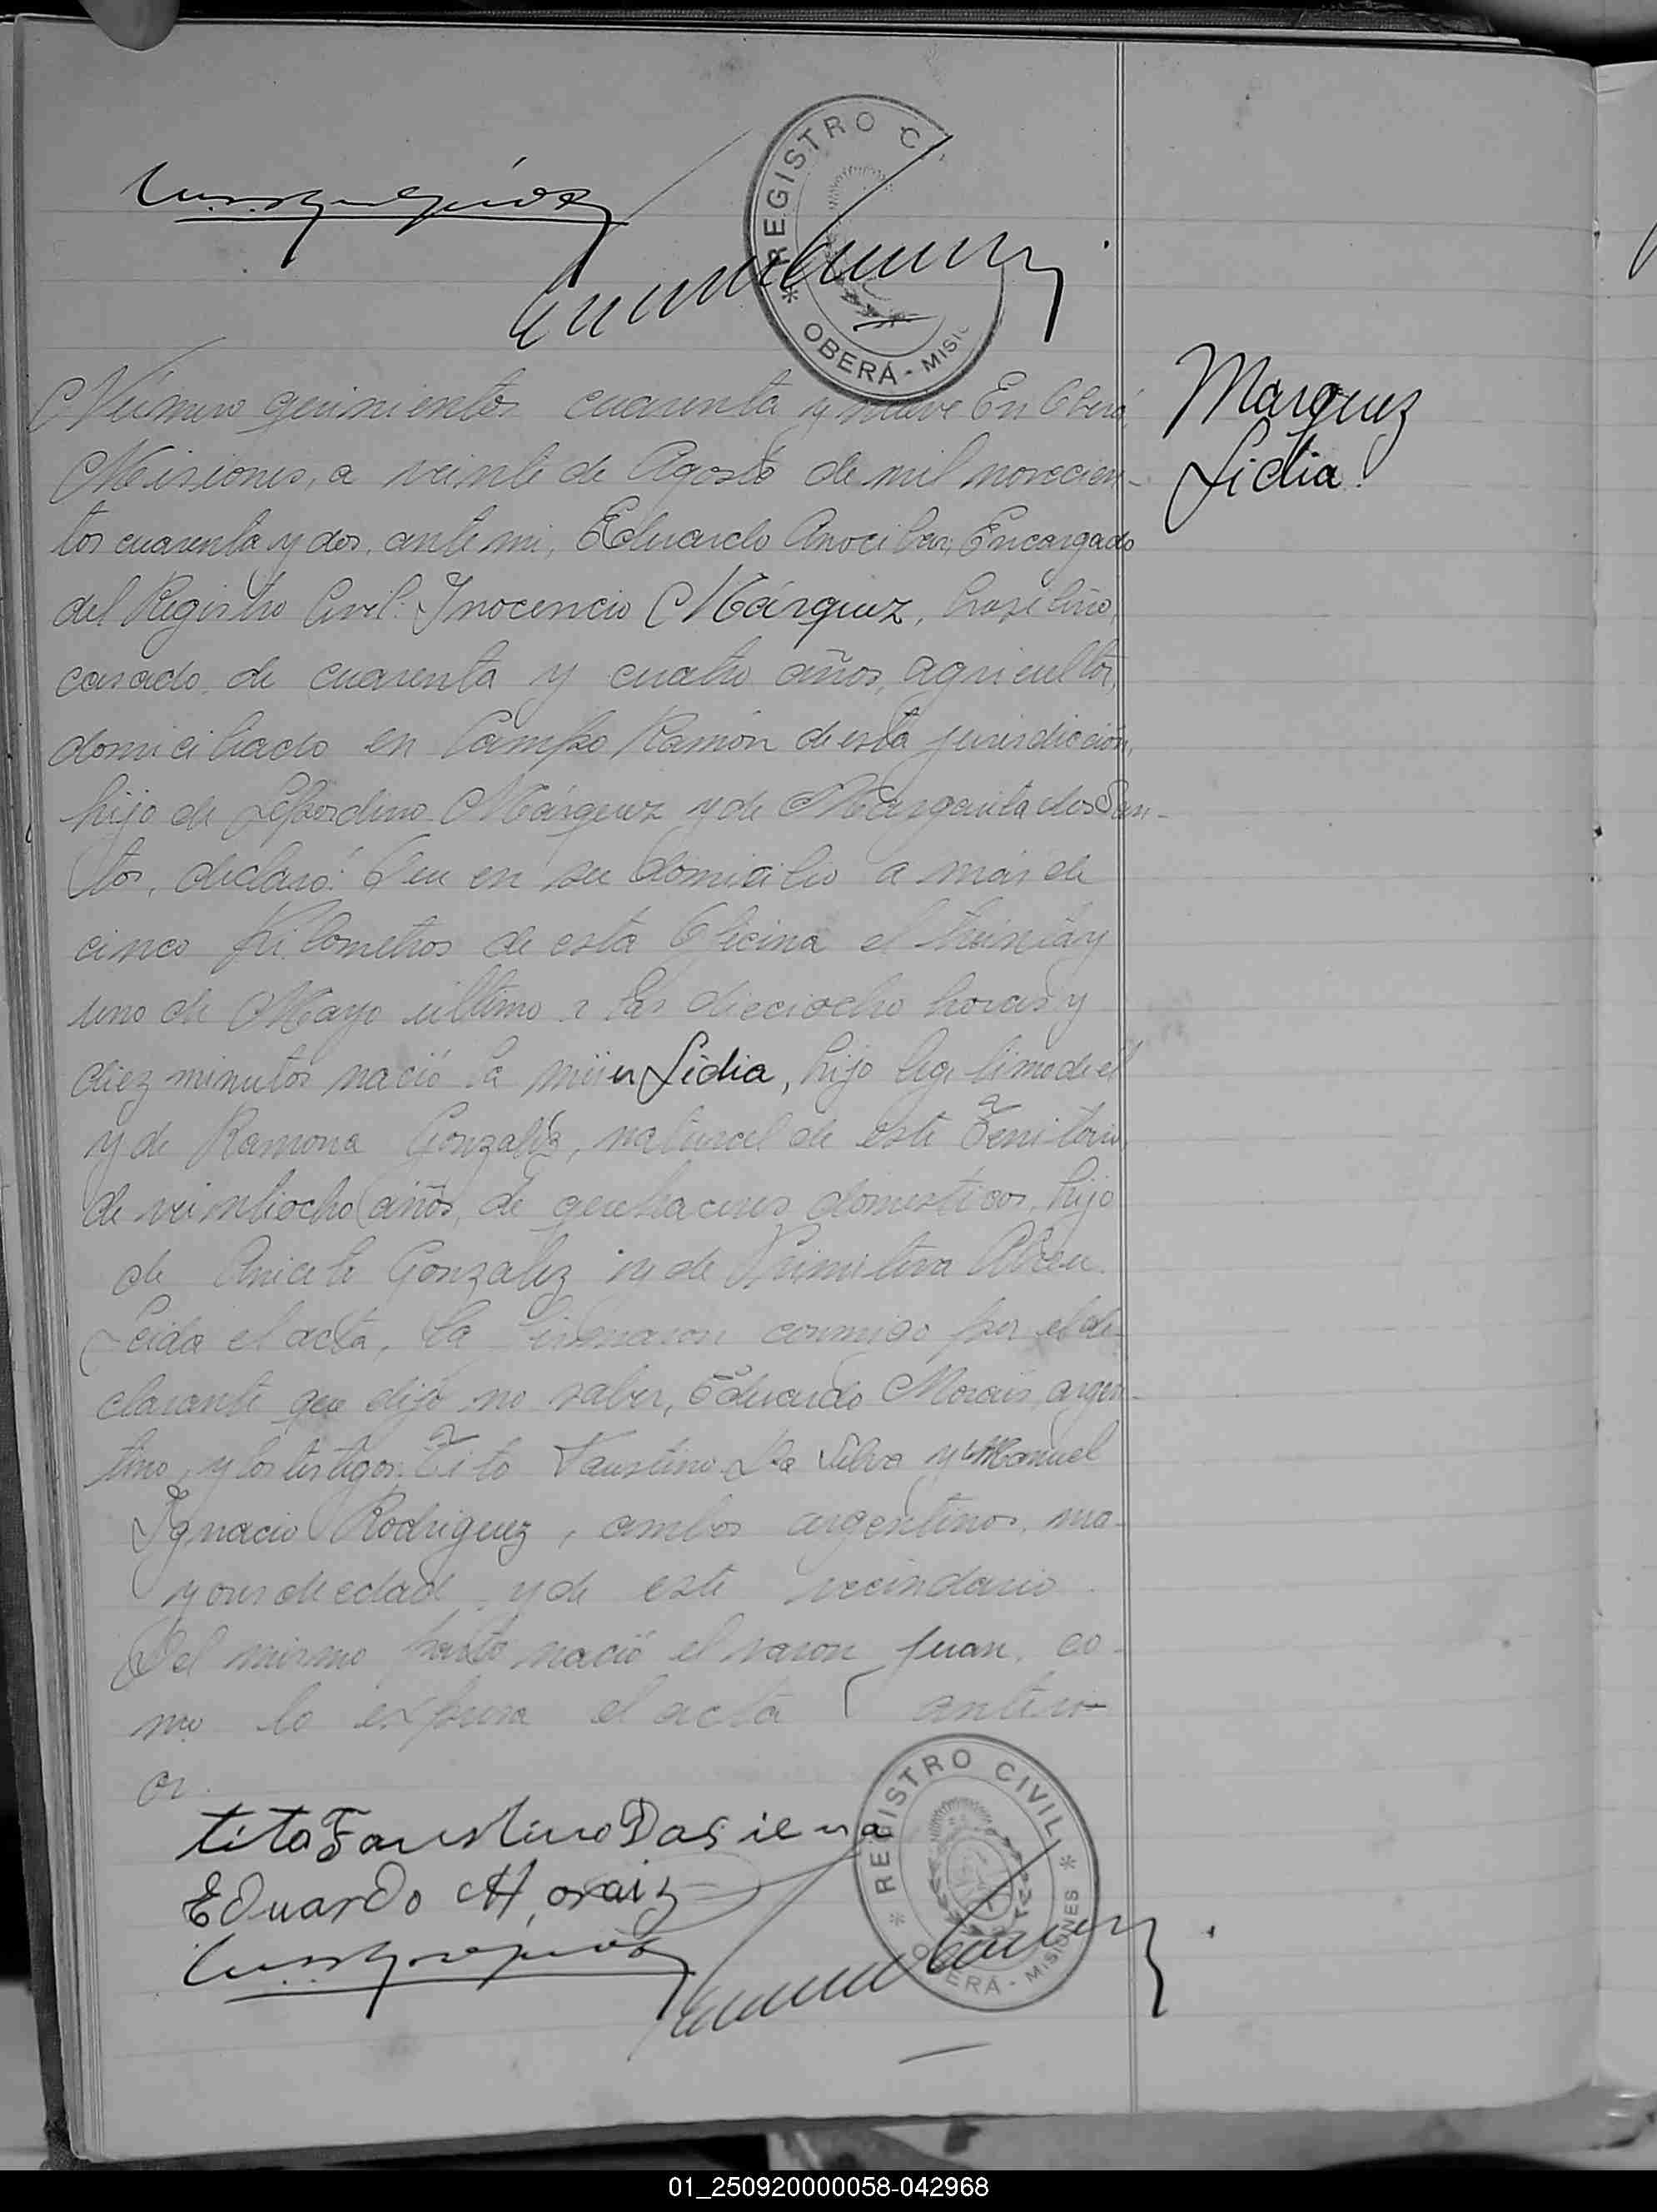 REGISTRO C
OBERÁ - MISI
Número quinientos cuarenta y nueve En Oberá,
Misiones, a veinte de Agosto de mil novecien-
tos cuarenta y dos, ante mi, Eduardo Anocibar, Encargado
del Registro Civil: Inocencio Márquez, brasileño,
casado, de cuarenta y cuatro años, agricultor,
domiciliado en Campo Ramón de esta jurisdicción,
hijo de Márquez y de Margarita dos San-
tos, declaró: Que en su domicilio a más de
cinco kilometros de esta Oficina el treinta y
uno de Mayo último a las dieciocho horas y
diez minutos nació la mujer Lidia, hija legítima de él
y de Ramona González, natural de este Territorio,
de veintiocho años, de quehaceres domesticos, hija
de Aniceto González y de Primitiva Abreu.
Leida el acta, la firmaron conmigo por el de-
clarante que dijo no saber, Eduardo Morais, argen-
tino, y los testigos: Tito Faustino Da Silva y Manuel
Ignacio Rodriguez, ambos argentinos, ma-
yores de edad y de este vecindario.
Del mismo parto nació el varon Juan, co-
mo lo expresa el acta anteri-
or.
Marquez
Lidia.
tito Faustino Da Silva
Eduardo Moraiz
REGISTRO CIVIL
OBERÁ - MISIONES
01_250920000058-042968